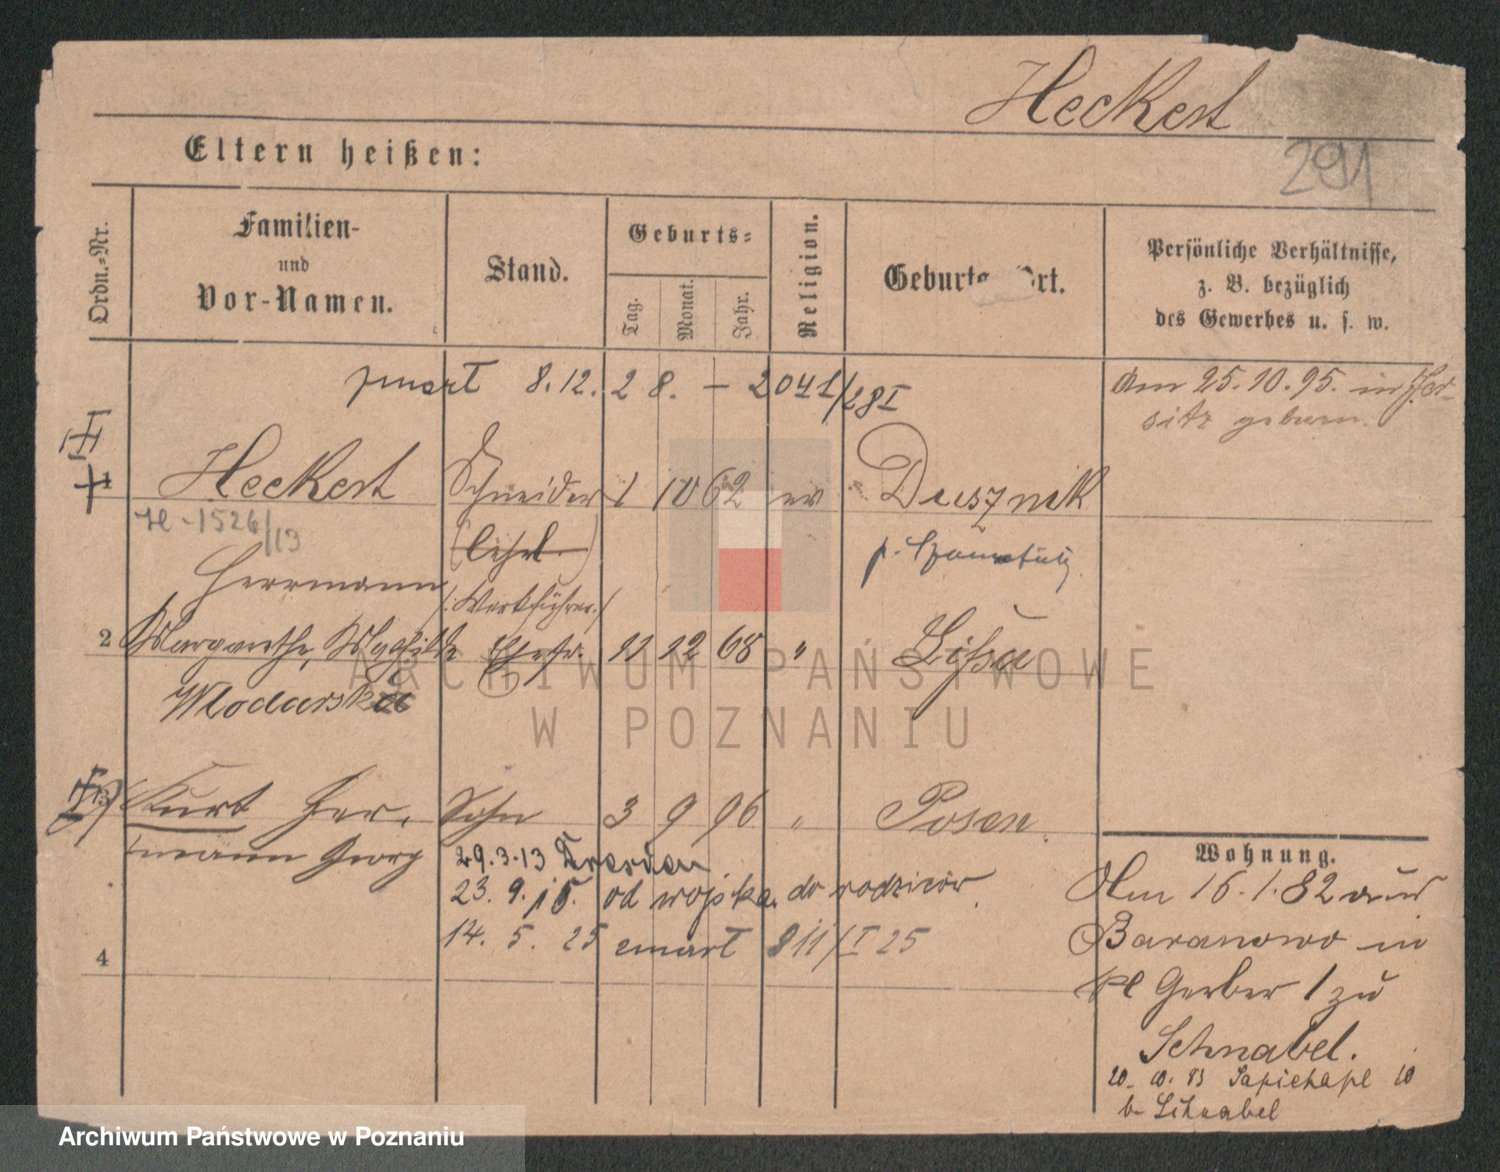 Heckert
291
Eltern heißen:
Ordn.-Nr.
Familien-
und
Vor-Namen.
Stand.
Geburts-
Tag.
Monat.
Jahr.
Religion.
Geburts Ort.
Persönliche Verhältnisse,
z. B. bezüglich
des Gewerbes u. s. w.
zmarł 8.12. 28. - 2041/28 I
Am 25.10.95. in Jer-
sitz geboren.
1 Heckert Schneider 1 10 62 ev Dusznik
H-1526/13
Herrmann
Werkführer
p. Szamotuły
2 Margarethe, Mathilde Ehefr. 11 12 68 " Lissa
Wlodarska
3 Kurt Her- Sohn 3 9 96 " Posen
mann Georg
29.3.13 Dresden
23.9.15. od wojska do rodziców
4 14.5.25 zmarł 811/I 25
Wohnung.
Am 16.1.82 aus
Baranowo in
kl Gerber 1 zu
Schnabel.
20. 10. 83 Sapiehapl 10
b. Schnabel
ARCHIWUM PAŃSTWOWE
W POZNANIU
Archiwum Państwowe w Poznaniu